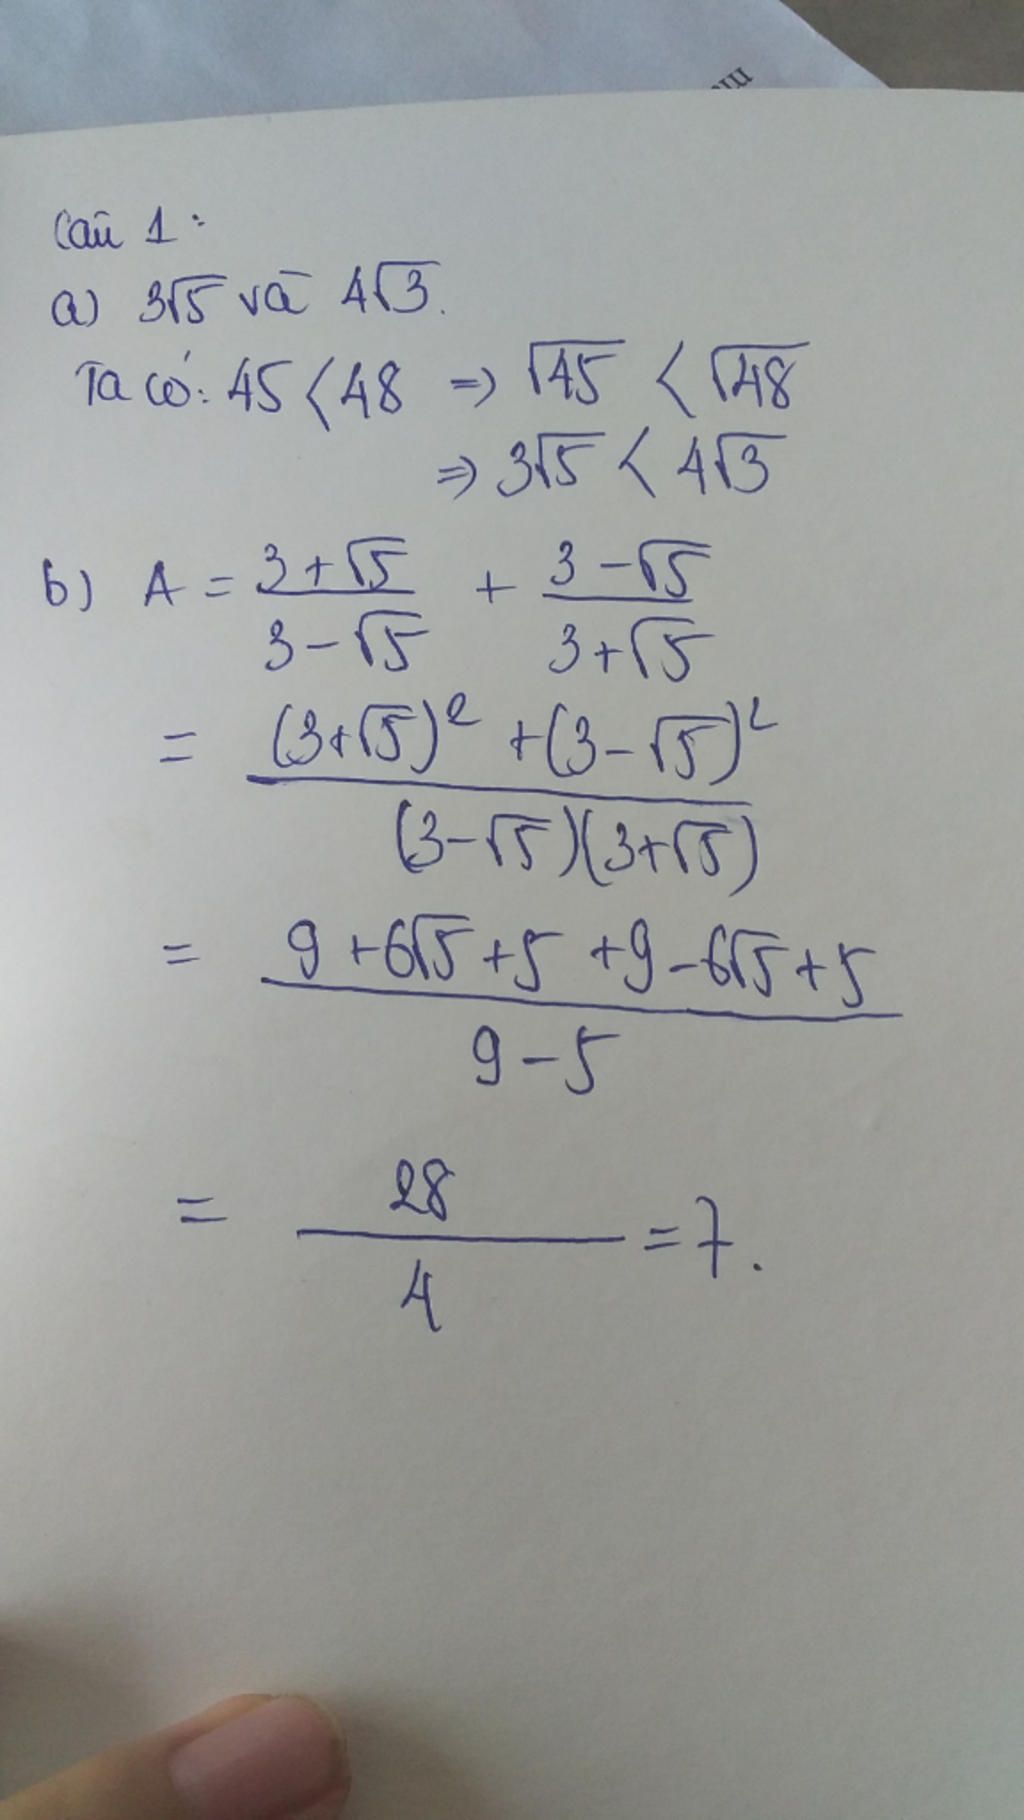 Câu 1:
a) 3√5 và 4√3.
Ta có: 45 < 48 => √45 < √48
=> 3√5 < 4√3
b) A = (3+√5)/(3-√5) + (3-√5)/(3+√5)
= ((3+√5)² + (3-√5)²)/((3-√5)(3+√5))
= (9+6√5+5+9-6√5+5)/(9-5)
= 28/4 = 7.